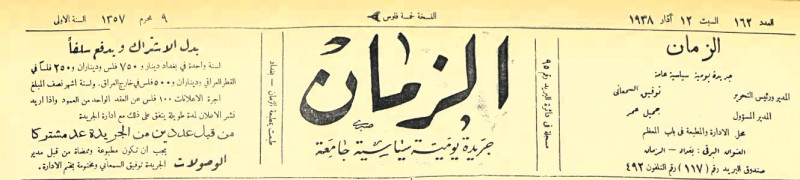 العدد ١٦٢
السبت ١٢ آذار ١٩٣٨
النسخة لخمسة فلوس
٩ محرم ١٣٥٧
السنة الاولى
الزمان
جريدة يومية سياسية عامة
المدير ورئيس التحرير
توفيق السمعاني
المدير المسؤول
جميل عمر
محل الادارة والمطبعة في باب المعظم
العنوان البرقي : بغداد — الزمان
صندوق البريد رقم (١١٧) رقم التلفون ٤٩٢
مسجلة في دائرة البريد رقم ٩٥
الزمان
جريدة يومية سياسية جامعة
طبعت بمطبعة الزمان — بغداد
بدل الاشتراك ويدفع سلفاً
لسنة واحدة في بغداد دينار و ٧٥٠ فلس وديناران و ٢٥٠ فلساً في
القطر العراقي وديناران و ٥٠٠ فلس في خارج العراق. ولستة اشهر نصف المبلغ
اجرة الاعلانات ١٠٠ فلس عن العقد الواحد من العمود واذا اريد
نشر الاعلان لمدة طويلة يتفق على ذلك مع ادارة الجريدة
من قبل عددين من الجريدة عد مشتركا
الوصولات
يجب ان تكون مطبوعة وممضاة من قبل مدير
الجريدة توفيق السمعاني ومختومة بختم الادارة .